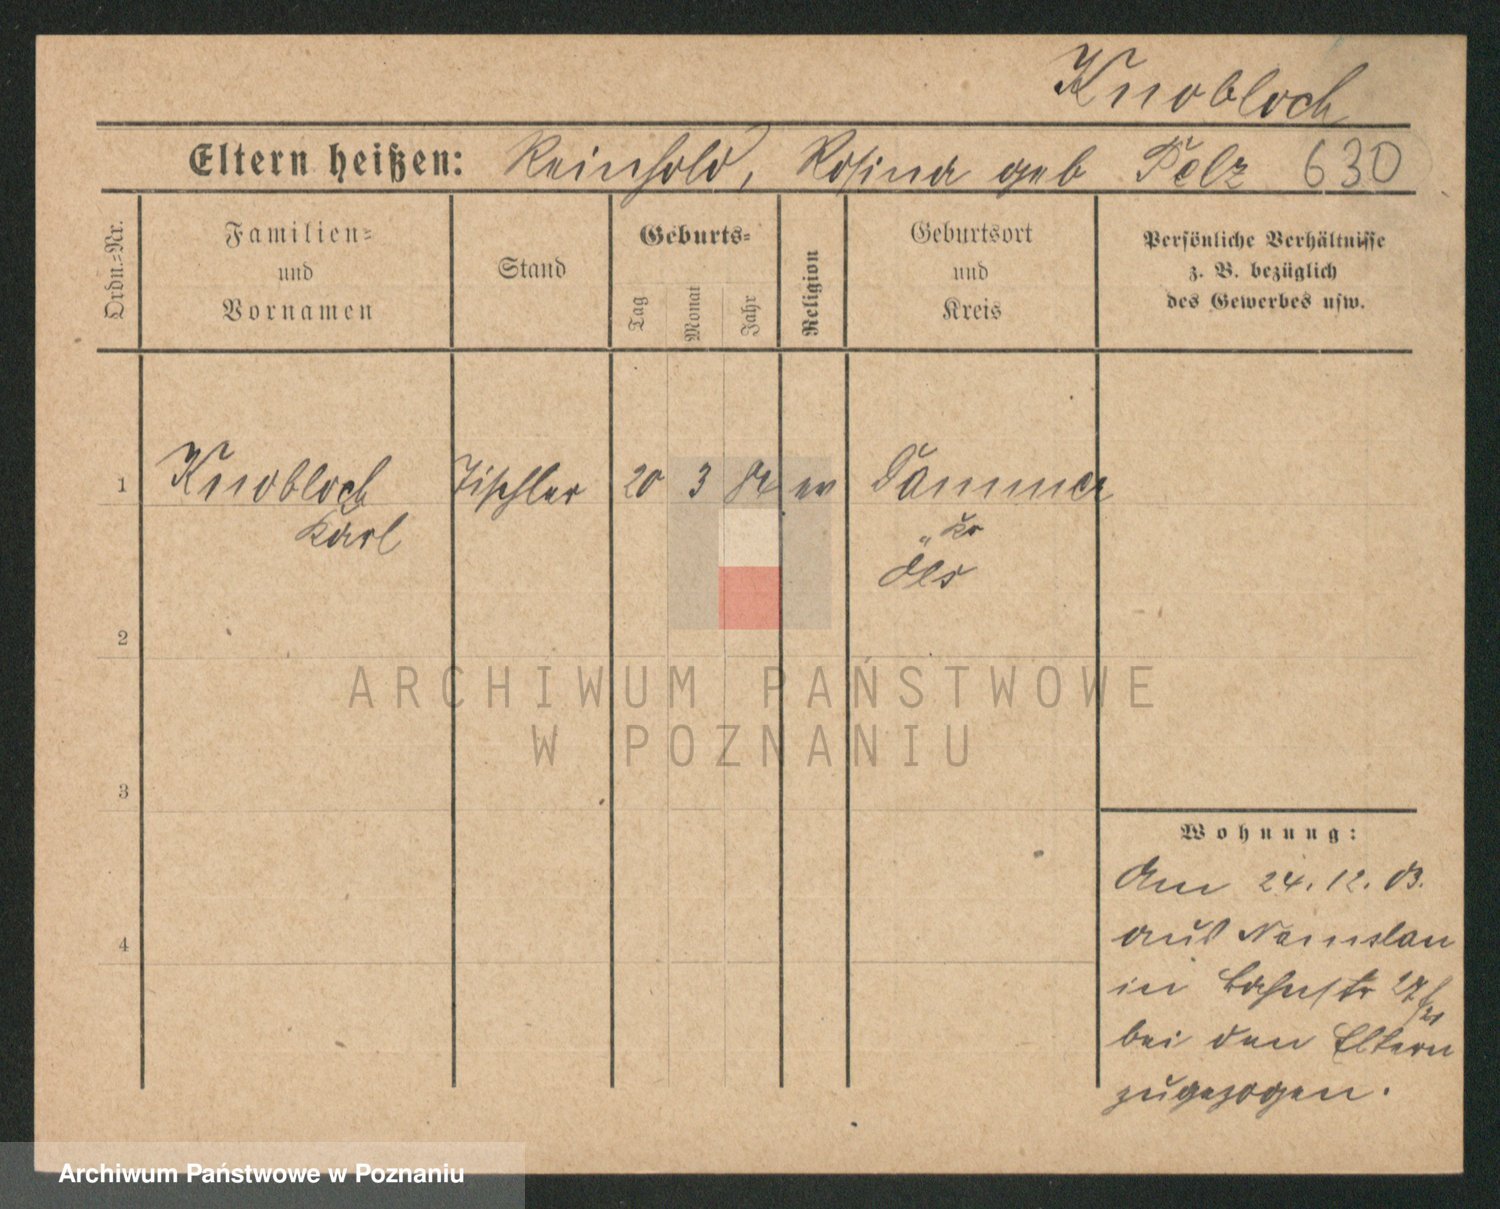 Knobloch
Eltern heißen: Reinhold, Rosina geb Pelz 630
Ordn.-Nr.
Familien-
und
Vornamen
Stand
Geburts-
Tag
Monat
Jahr
Religion
Geburtsort
und
Kreis
Persönliche Verhältnisse
z. B. bezüglich
des Gewerbes usw.
1 Knobloch Tischler 20 3 84 ev Dammer
Karl
" Kr
Öls
2
ARCHIWUM PAŃSTWOWE
W POZNANIU
3
Wohnung:
Am 24.12.03.
4 aus Namslau
in Bahnstr 27
bei den Eltern
zugezogen.
Archiwum Państwowe w Poznaniu